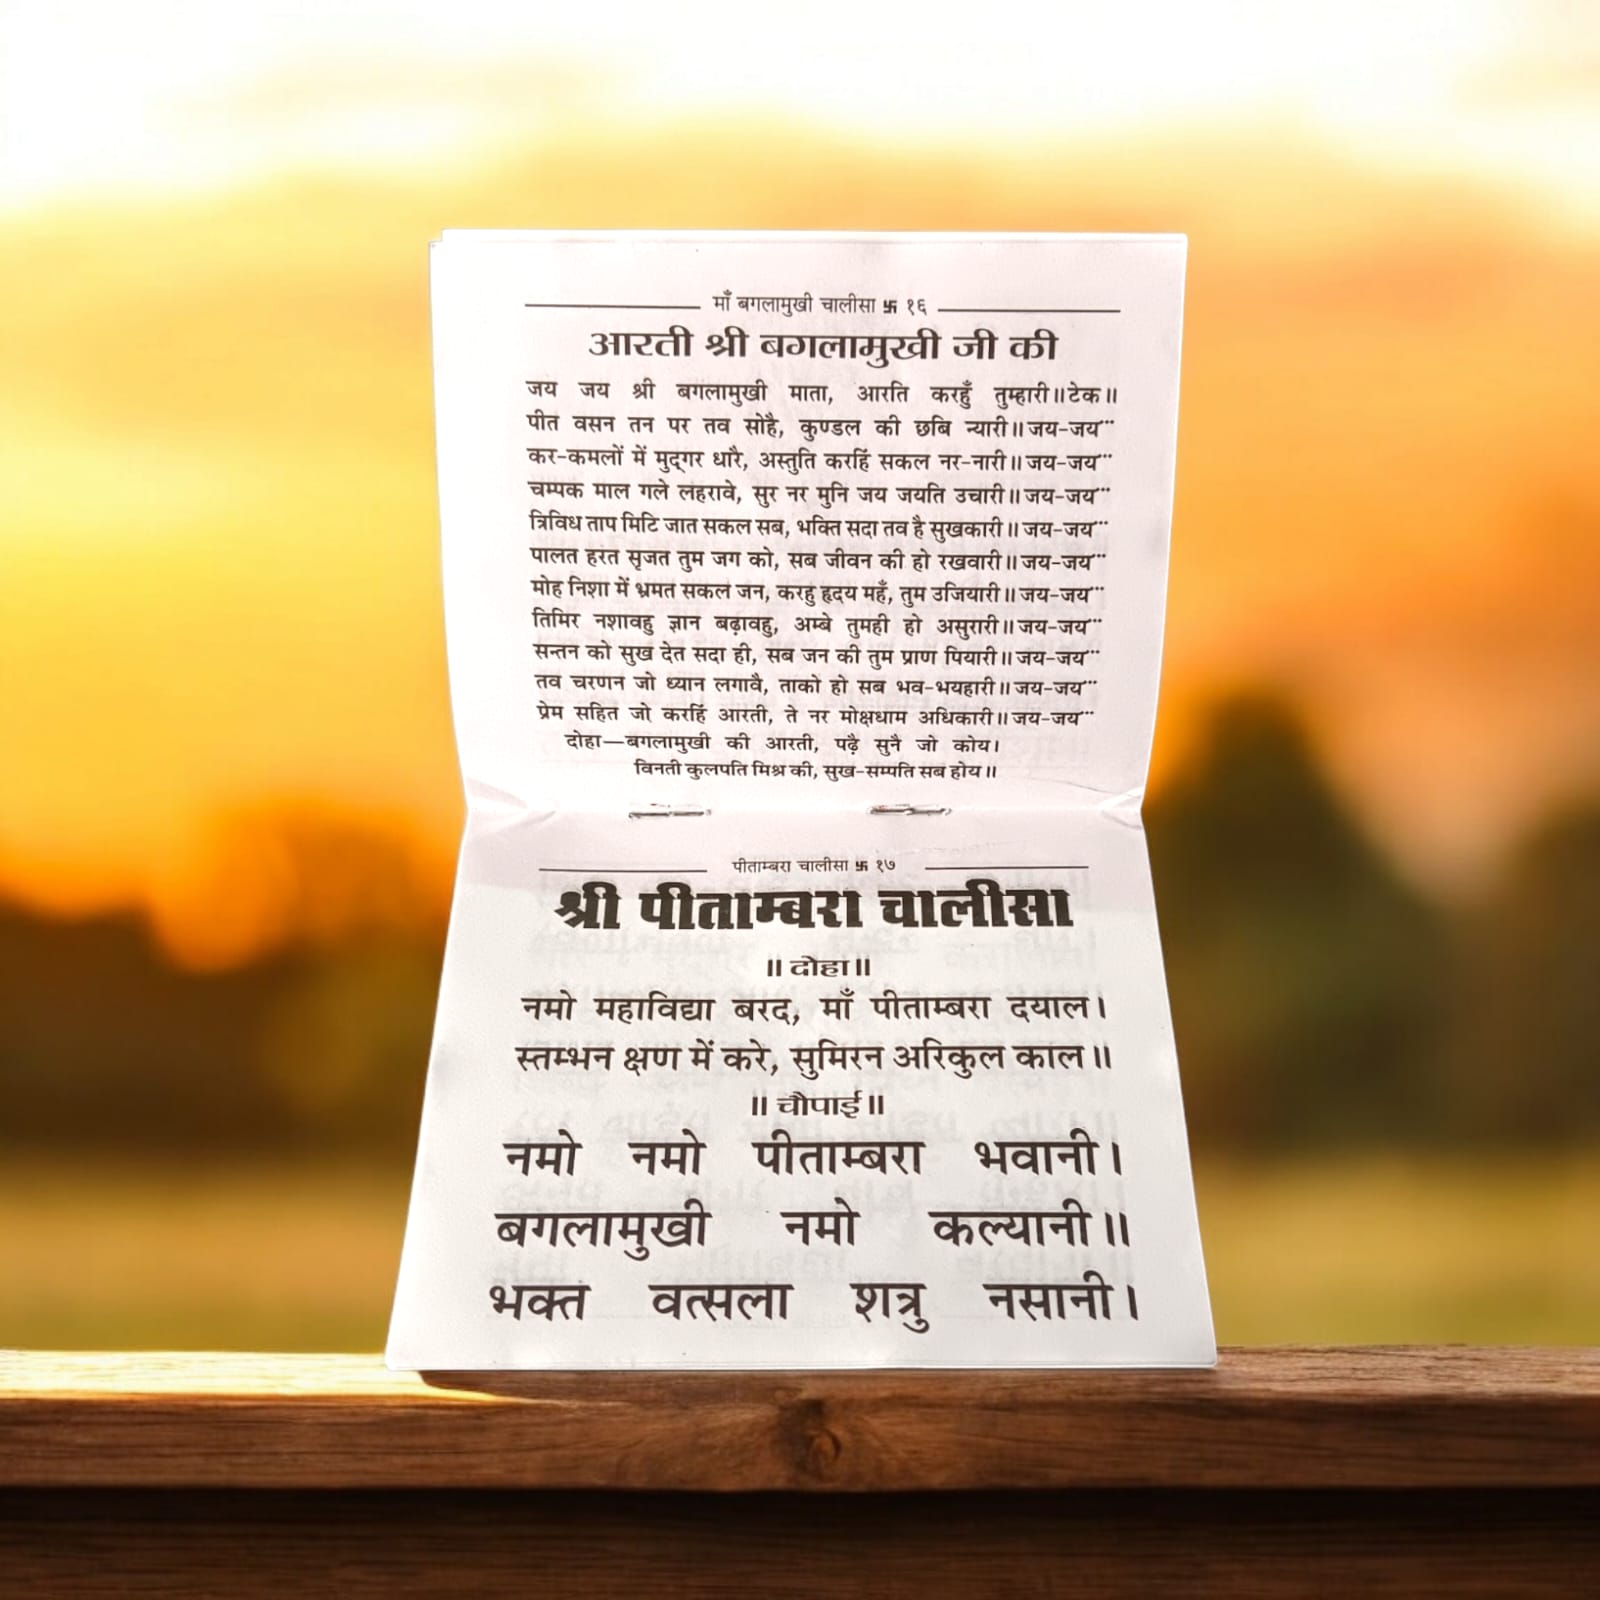 माँ बगलामुखी चालीसा 卐 १६
आरती श्री बगलामुखी जी की
जय जय श्री बगलामुखी माता, आरति करहुँ तुम्हारी॥टेक॥
पीत वसन तन पर तव सोहै, कुण्डल की छबि न्यारी॥जय-जय···
कर-कमलों में मुद्गर धारै, अस्तुति करहिं सकल नर-नारी॥जय-जय···
चम्पक माल गले लहरावे, सुर नर मुनि जय जयति उचारी॥जय-जय···
त्रिविध ताप मिटि जात सकल सब, भक्ति सदा तव है सुखकारी॥जय-जय···
पालत हरत सृजत तुम जग को, सब जीवन की हो रखवारी॥जय-जय···
मोह निशा में भ्रमत सकल जन, करहु हृदय महँ, तुम उजियारी॥जय-जय···
तिमिर नशावहु ज्ञान बढ़ावहु, अम्बे तुमही हो असुरारी॥जय-जय···
सन्तन को सुख देत सदा ही, सब जन की तुम प्राण पियारी॥जय-जय···
तव चरणन जो ध्यान लगावै, ताको हो सब भव-भयहारी॥जय-जय···
प्रेम सहित जो करहिं आरती, ते नर मोक्षधाम अधिकारी॥जय-जय···
दोहा—बगलामुखी की आरती, पढ़ै सुनै जो कोय।
विनती कुलपति मिश्र की, सुख-सम्पति सब होय॥
पीताम्बरा चालीसा 卐 १७
श्री पीताम्बरा चालीसा
॥दोहा॥
नमो महाविद्या बरद, माँ पीताम्बरा दयाल।
स्तम्भन क्षण में करे, सुमिरन अरिकुल काल॥
॥चौपाई॥
नमो नमो पीताम्बरा भवानी।
बगलामुखी नमो कल्यानी॥
भक्त वत्सला शत्रु नसानी।